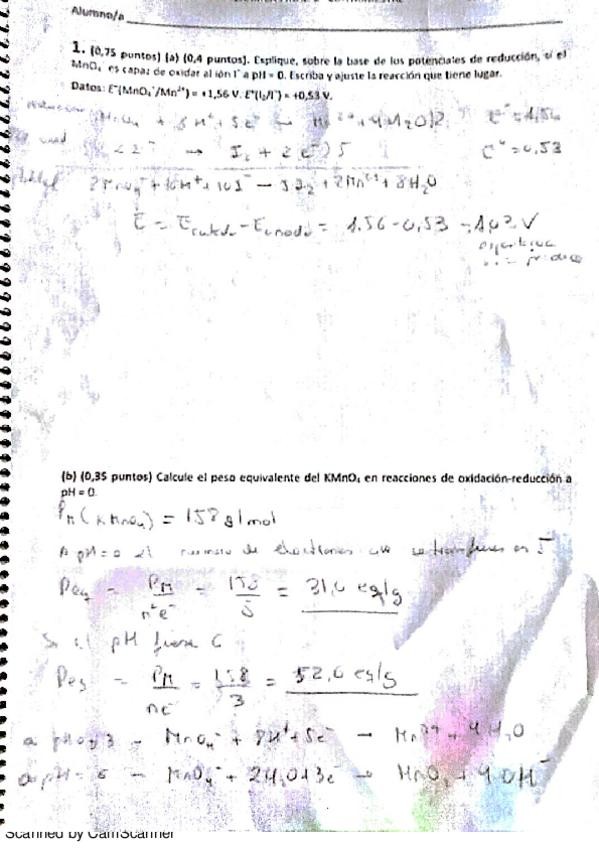 Alumno/a
1. (0,75 puntos) (a) (0,4 puntos). Explique, sobre la base de los potenciales de reducción, si el
MnO₄⁻ es capaz de oxidar al ión I⁻ a pH = 0. Escriba y ajuste la reacción que tiene lugar.
Datos: E°(MnO₄⁻/Mn²⁺) = +1,56 V. E°(I₂/I⁻) = +0,53 V.
MnO₄⁻ + 8H⁺ + 5e⁻ → Mn²⁺ + 4H₂O)2
→ I₂ + 2e⁻) 5 E° = 0,53
2MnO₄⁻ + 16H⁺ + 10I⁻ → 5I₂ + 2Mn²⁺ + 8H₂O
E = E - E = 1.56 - 0,53 = 1,03 V
(b) (0,35 puntos) Calcule el peso equivalente del KMnO₄ en reacciones de oxidación-reducción a
pH = 0.
PM (KMnO₄) = 158 g/mol
A pH = 0 el numero de electrones que se transfieren es 5
Peq = PM/nº e⁻ = 158/5 = 31,6 eq/g
Si el pH fuera 6
Peq = PM/ne⁻ = 158/3 = 52,6 eq/g
MnO₄⁻ + 8H⁺ + 5e⁻ → Mn²⁺ + 4H₂O
a pH = 6 → MnO₄⁻ + 2H₂O + 3e⁻ → MnO₂ + 4OH⁻
Scanned by CamScanner